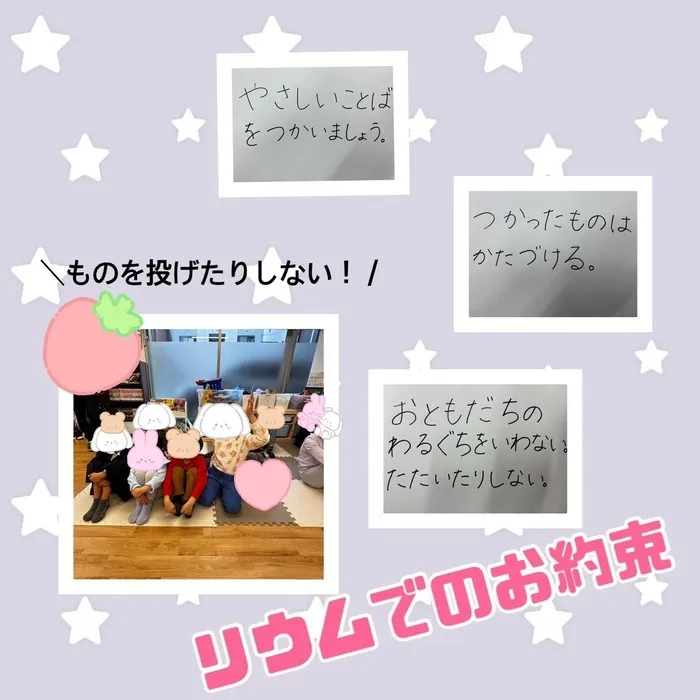 やさしいことば
をつかいましょう。
つかったものは
かたづける。
\ものを投げたりしない！/
おともだちの
わるぐちをいわない。
たたいたりしない。
リウムでのお約束